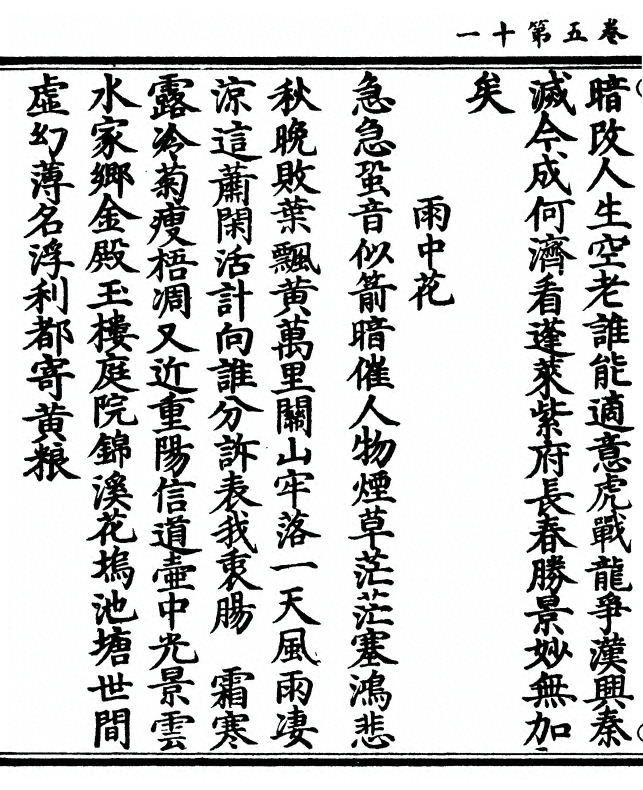 卷五第十一
暗改人生空老誰能適意虎戰龍爭漢興秦
滅今成何濟看蓬萊紫府長春勝景妙無加
矣
雨中花
急急蛩音似箭暗催人物煙草茫茫塞鴻悲
秋晚敗葉飄黃萬里關山牢落一天風雨凄
涼這蕭閑活計向誰分訴表我衷腸　霜寒
露冷菊瘦梧凋又近重陽信道壺中光景雲
水家鄉金殿玉樓庭院錦溪花塢池塘世間
虛幻薄名浮利都寄黃粮